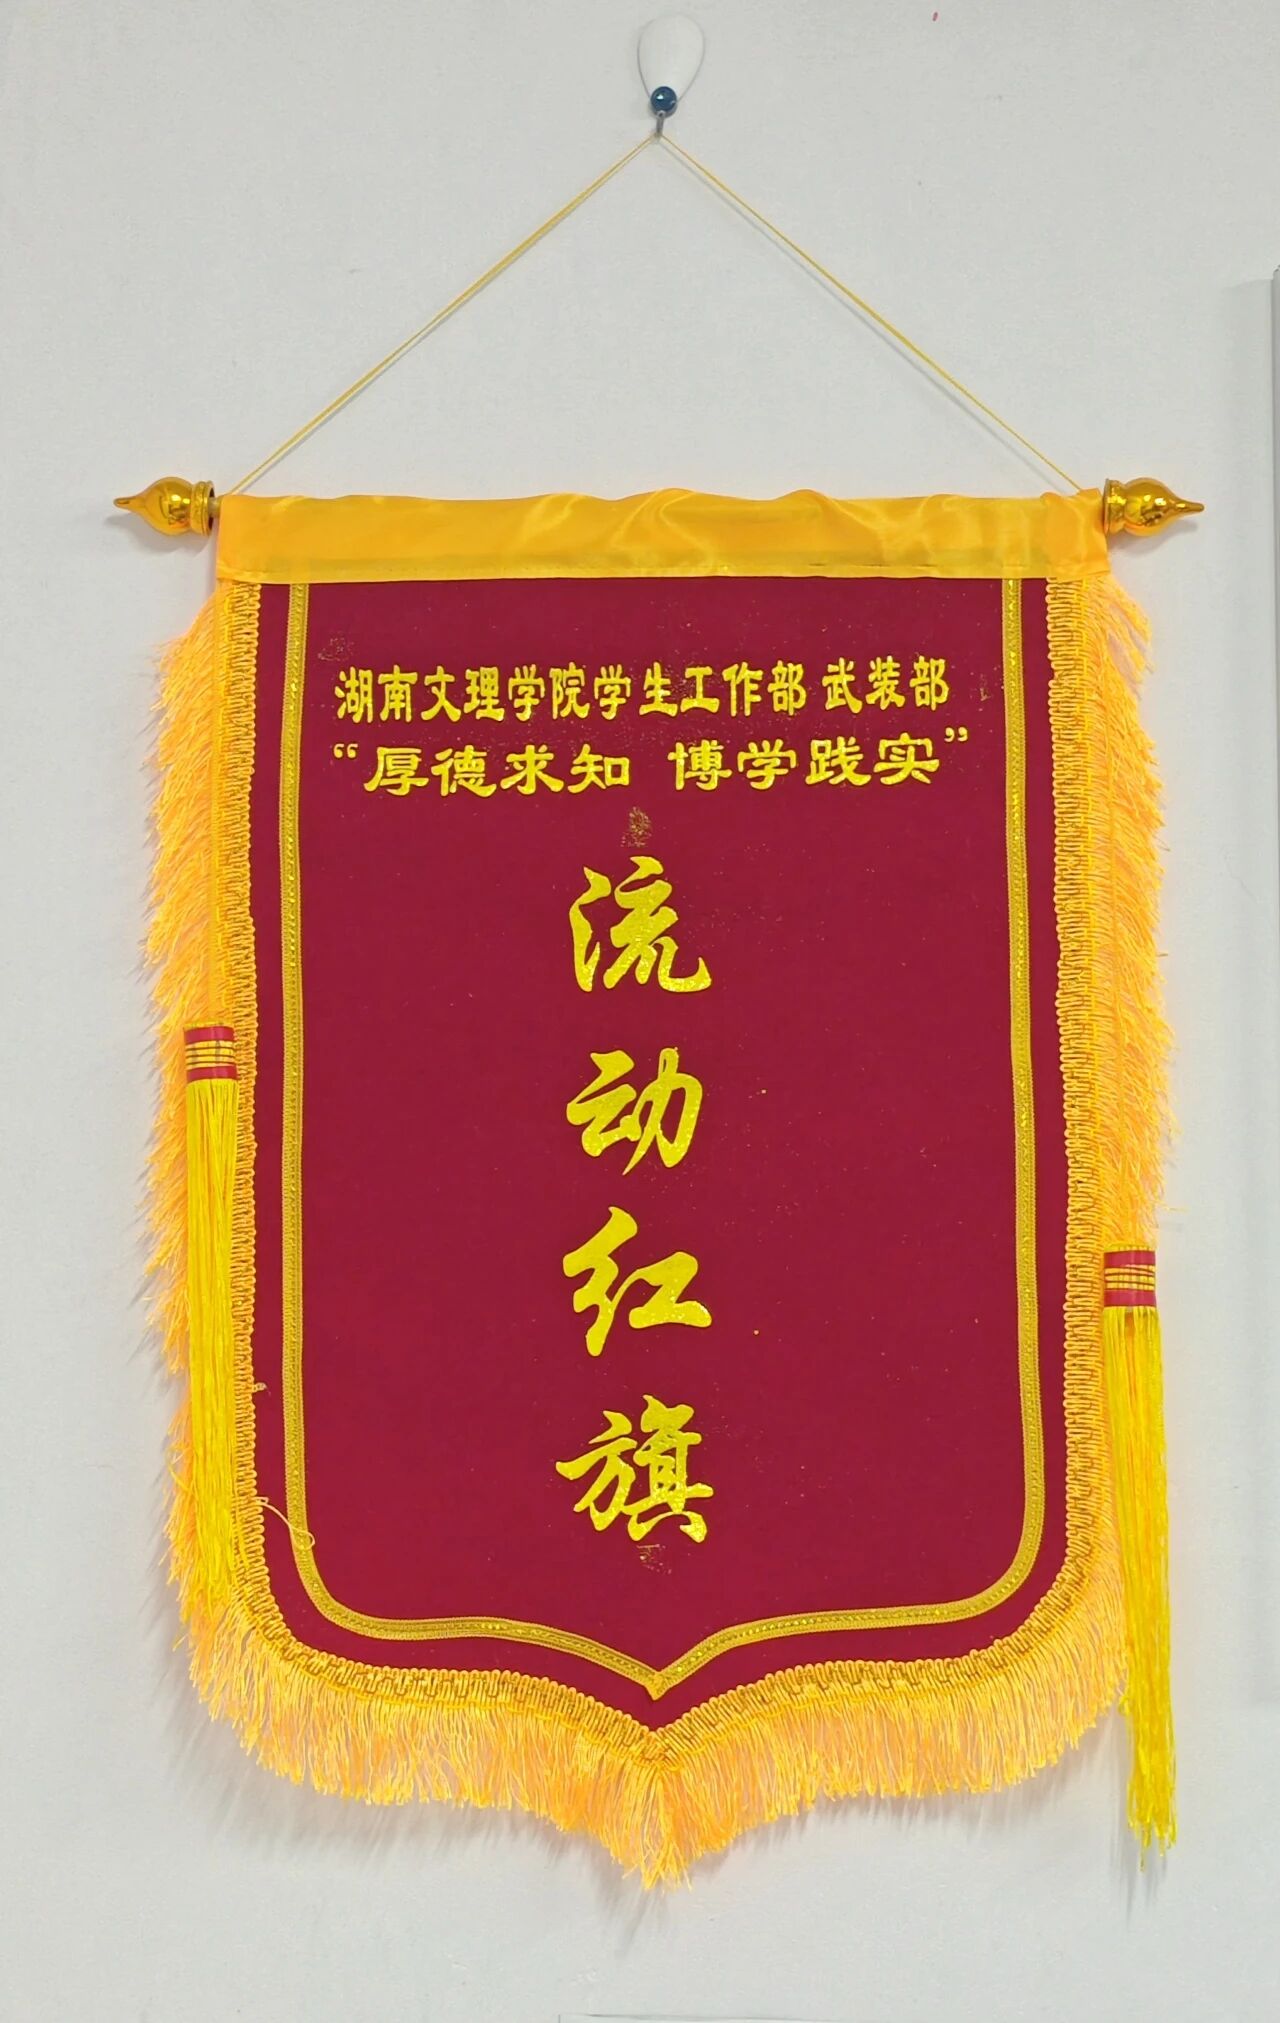 湖南文理学院学生工作部 武装部
“厚德求知 博学践实”
流动红旗